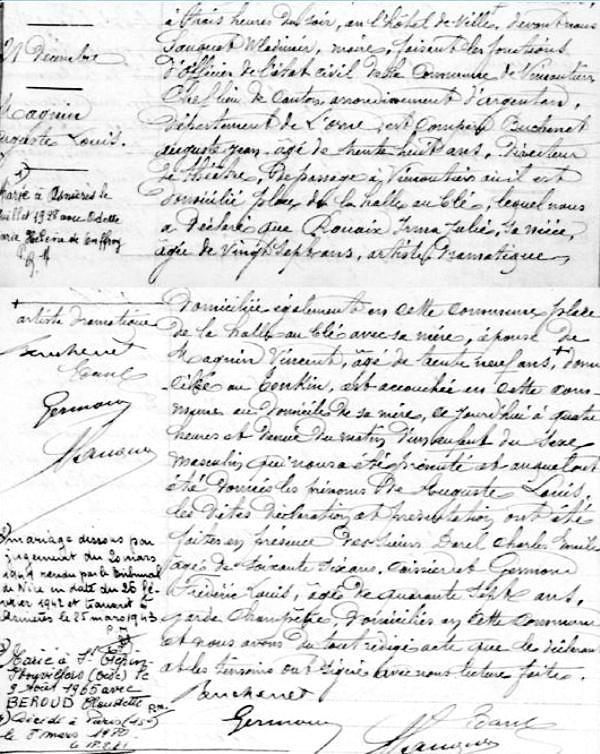 21 décembre
Magnin
Auguste Louis.
Marié à Asnières le
juillet 1928 avec Odette
à trois heures du soir, en l'hôtel de Ville, devant nous
Wladimir, maire, faisant les fonctions
d'Officier de l'état civil de la Commune de Vimoutiers
Chef lieu de Canton arrondissement d'argentan,
Département de L'orne, est Comparu Buchenet
auguste jean, agé de trente huit ans, Directeur
de théâtre, de passage à Vimoutiers où il est
domicilié place de la halle au blé, lequel nous
a Déclaré que Rouaix Irma Julie, sa nièce,
agée de Vingt Sept ans, artiste Dramatique,
domiciliée également en cette commune place
de la halle au blé avec sa mère, épouse de
Magnin Vincent, âgé de trente neuf ans, + domi
cilié au Tonkin, est accouchée en cette com-
mune au domicile de sa mère, ce jourd'hui à quatre
heures et demie du matin d'un enfant du sexe
masculin qui nous a été présenté et auquel ont
été donnés les prénoms de Auguste Louis.
les dites déclaration et présentation ont été
faites en présence des sieurs Charles Emile
agé de soixante six ans, et Germond
Frédéric Louis, agé de quarante sept ans,
garde Champêtre, domiciliés en cette commune
et nous avons du tout rédigé acte que le déclarant
et les témoins ont signé avec nous lecture faite.
Buchenet
Germond
+
artiste dramatique
Buchenet
Germond
mariage dissous par
jugement du 20 mars
1941 rendu par le tribunal
de Nice en date du 26 fé-
vrier 1942 et transcrit à
Asnières le 25 mars 1943
Marié à St Crépin
Ibouvillers (Oise) le
9 août 1965 avec
BEROUD Claudette
Décédé à Paris (15e)
le 8 mars 1970